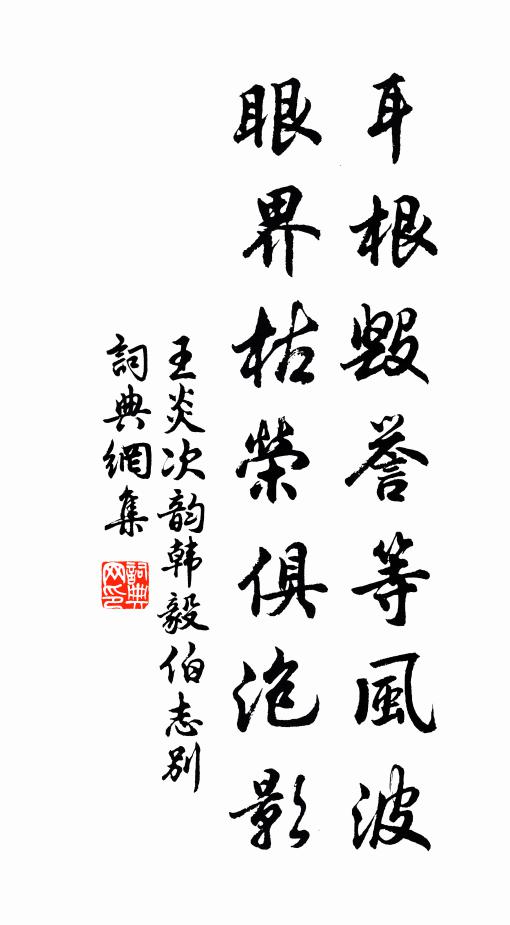 耳根毁誉等風波
眼界枯榮俱泡影
王炎次韵韩毅伯志别
詞典網集
詞典网印